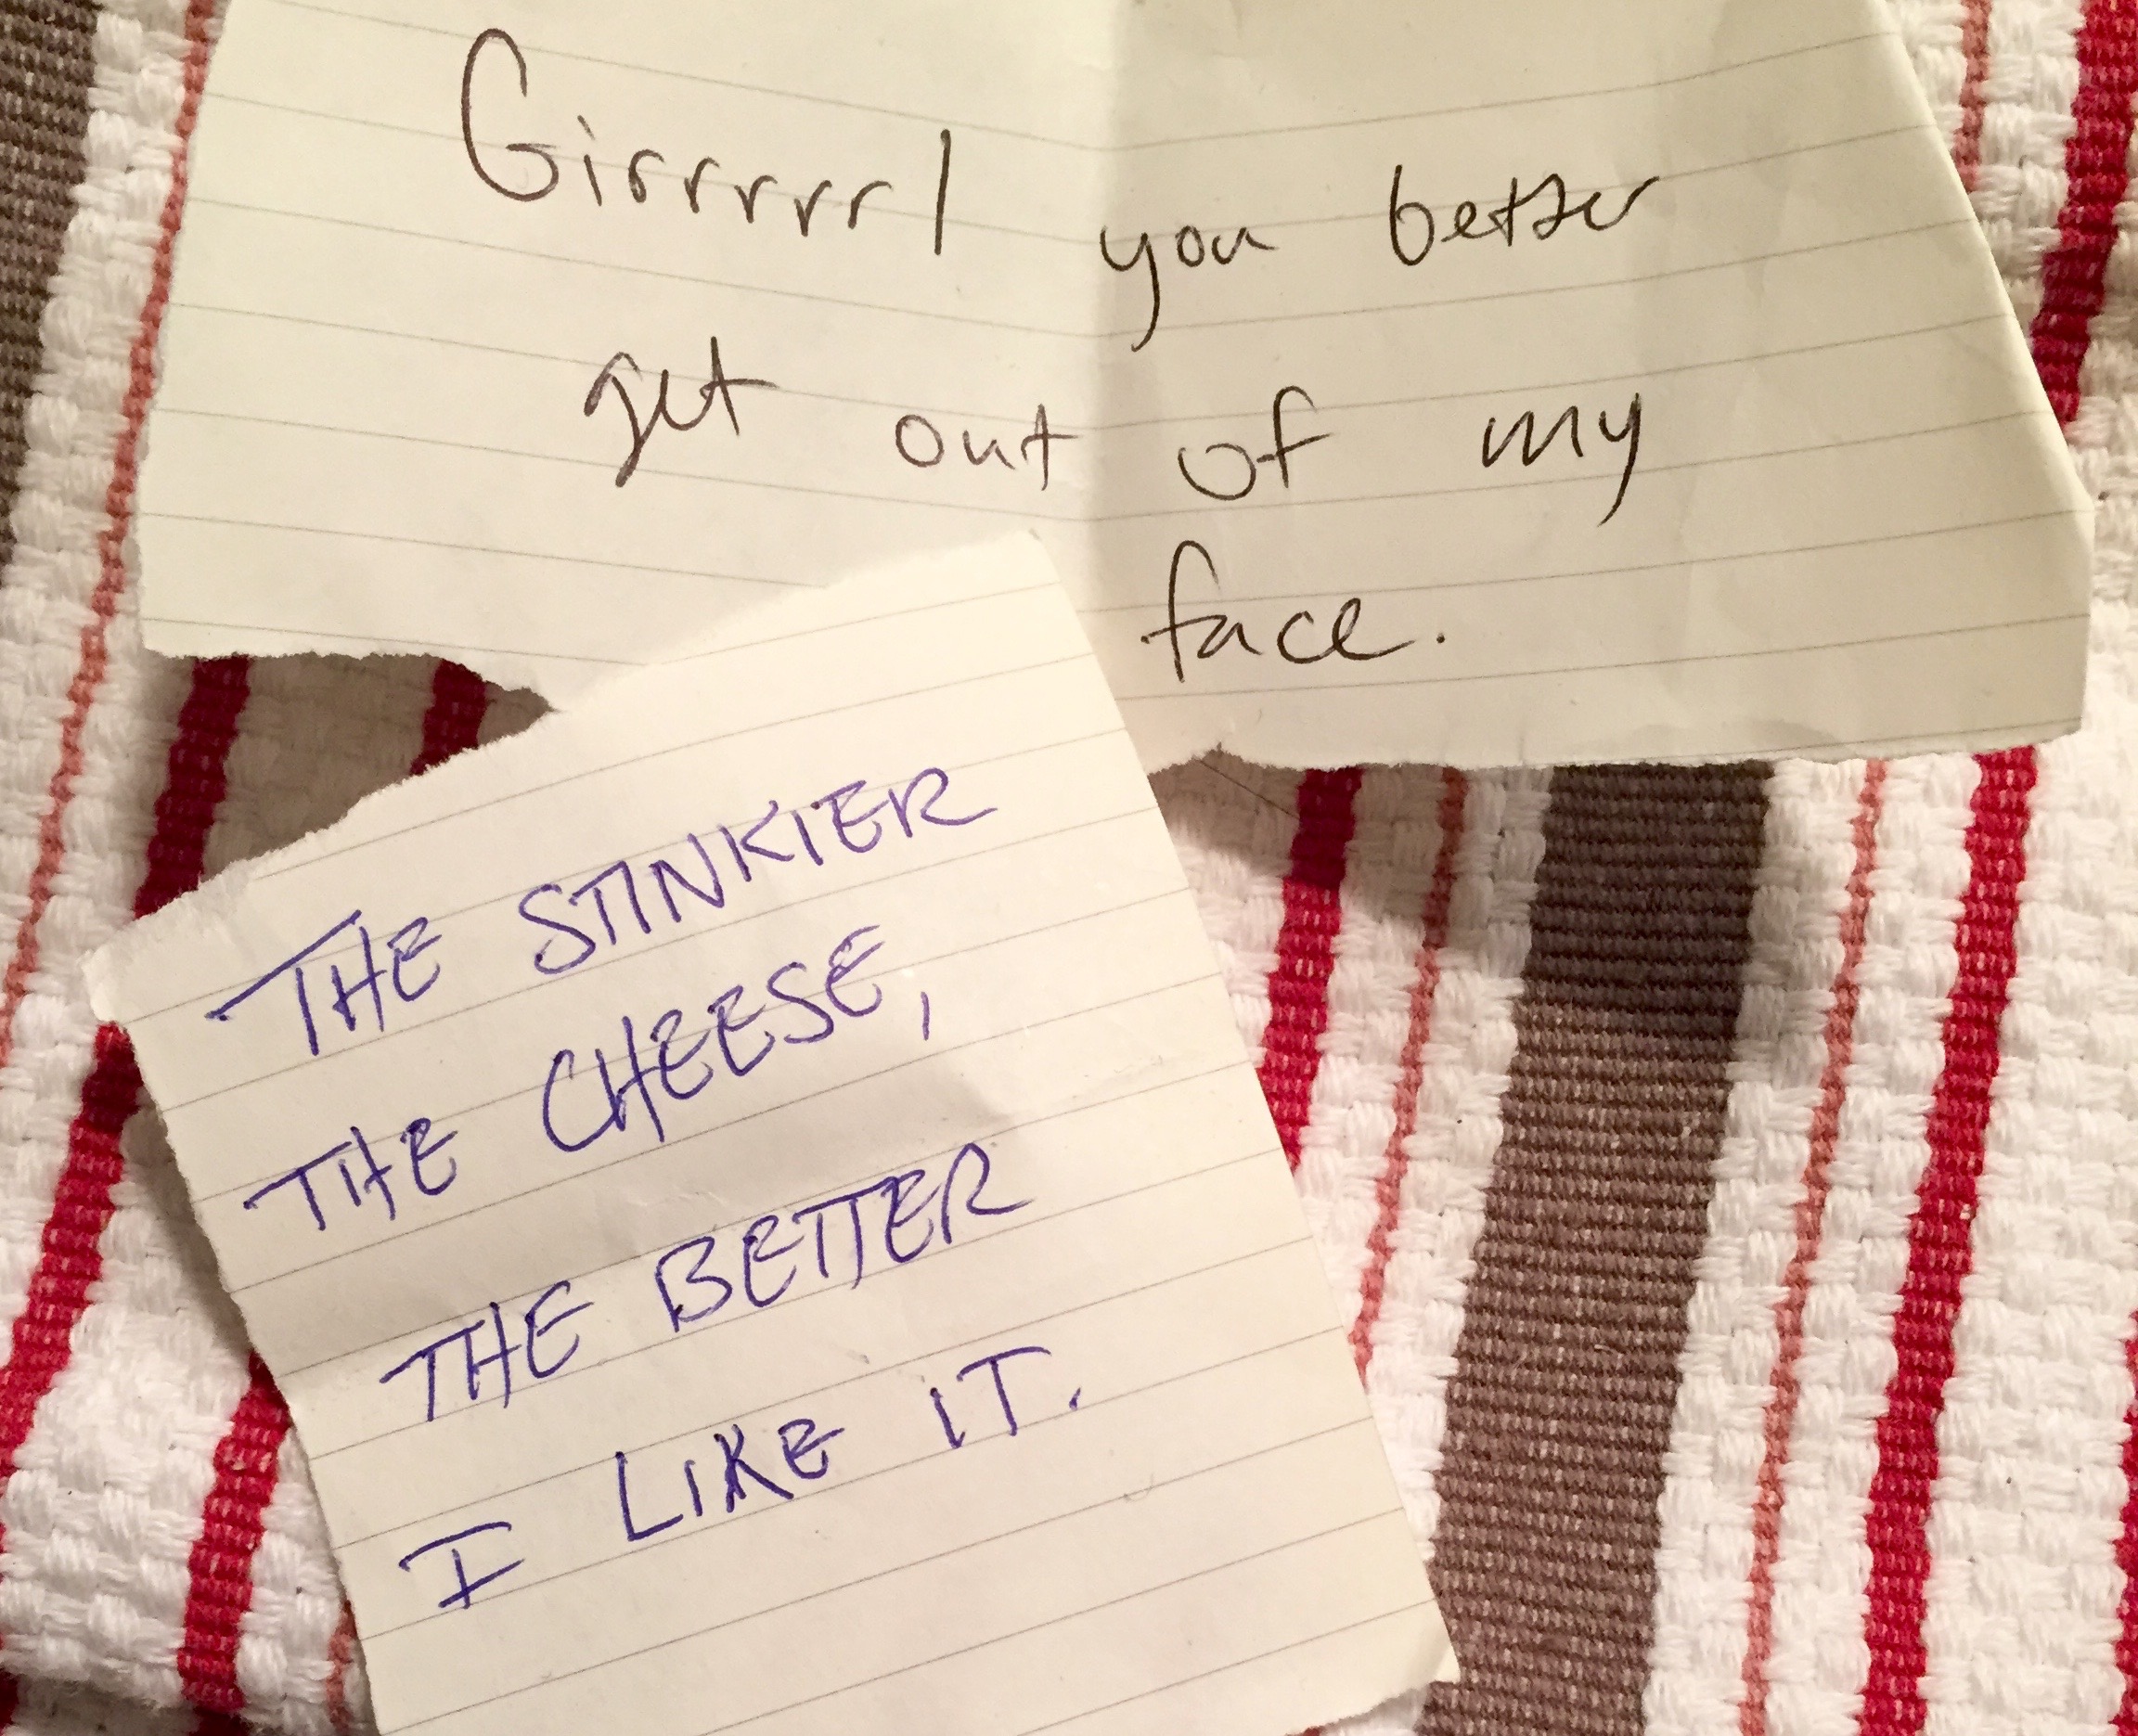 Girrrrrl you better
get out of my
face.
THE STINKIER
THE CHEESE,
THE BETTER
I LIKE IT.